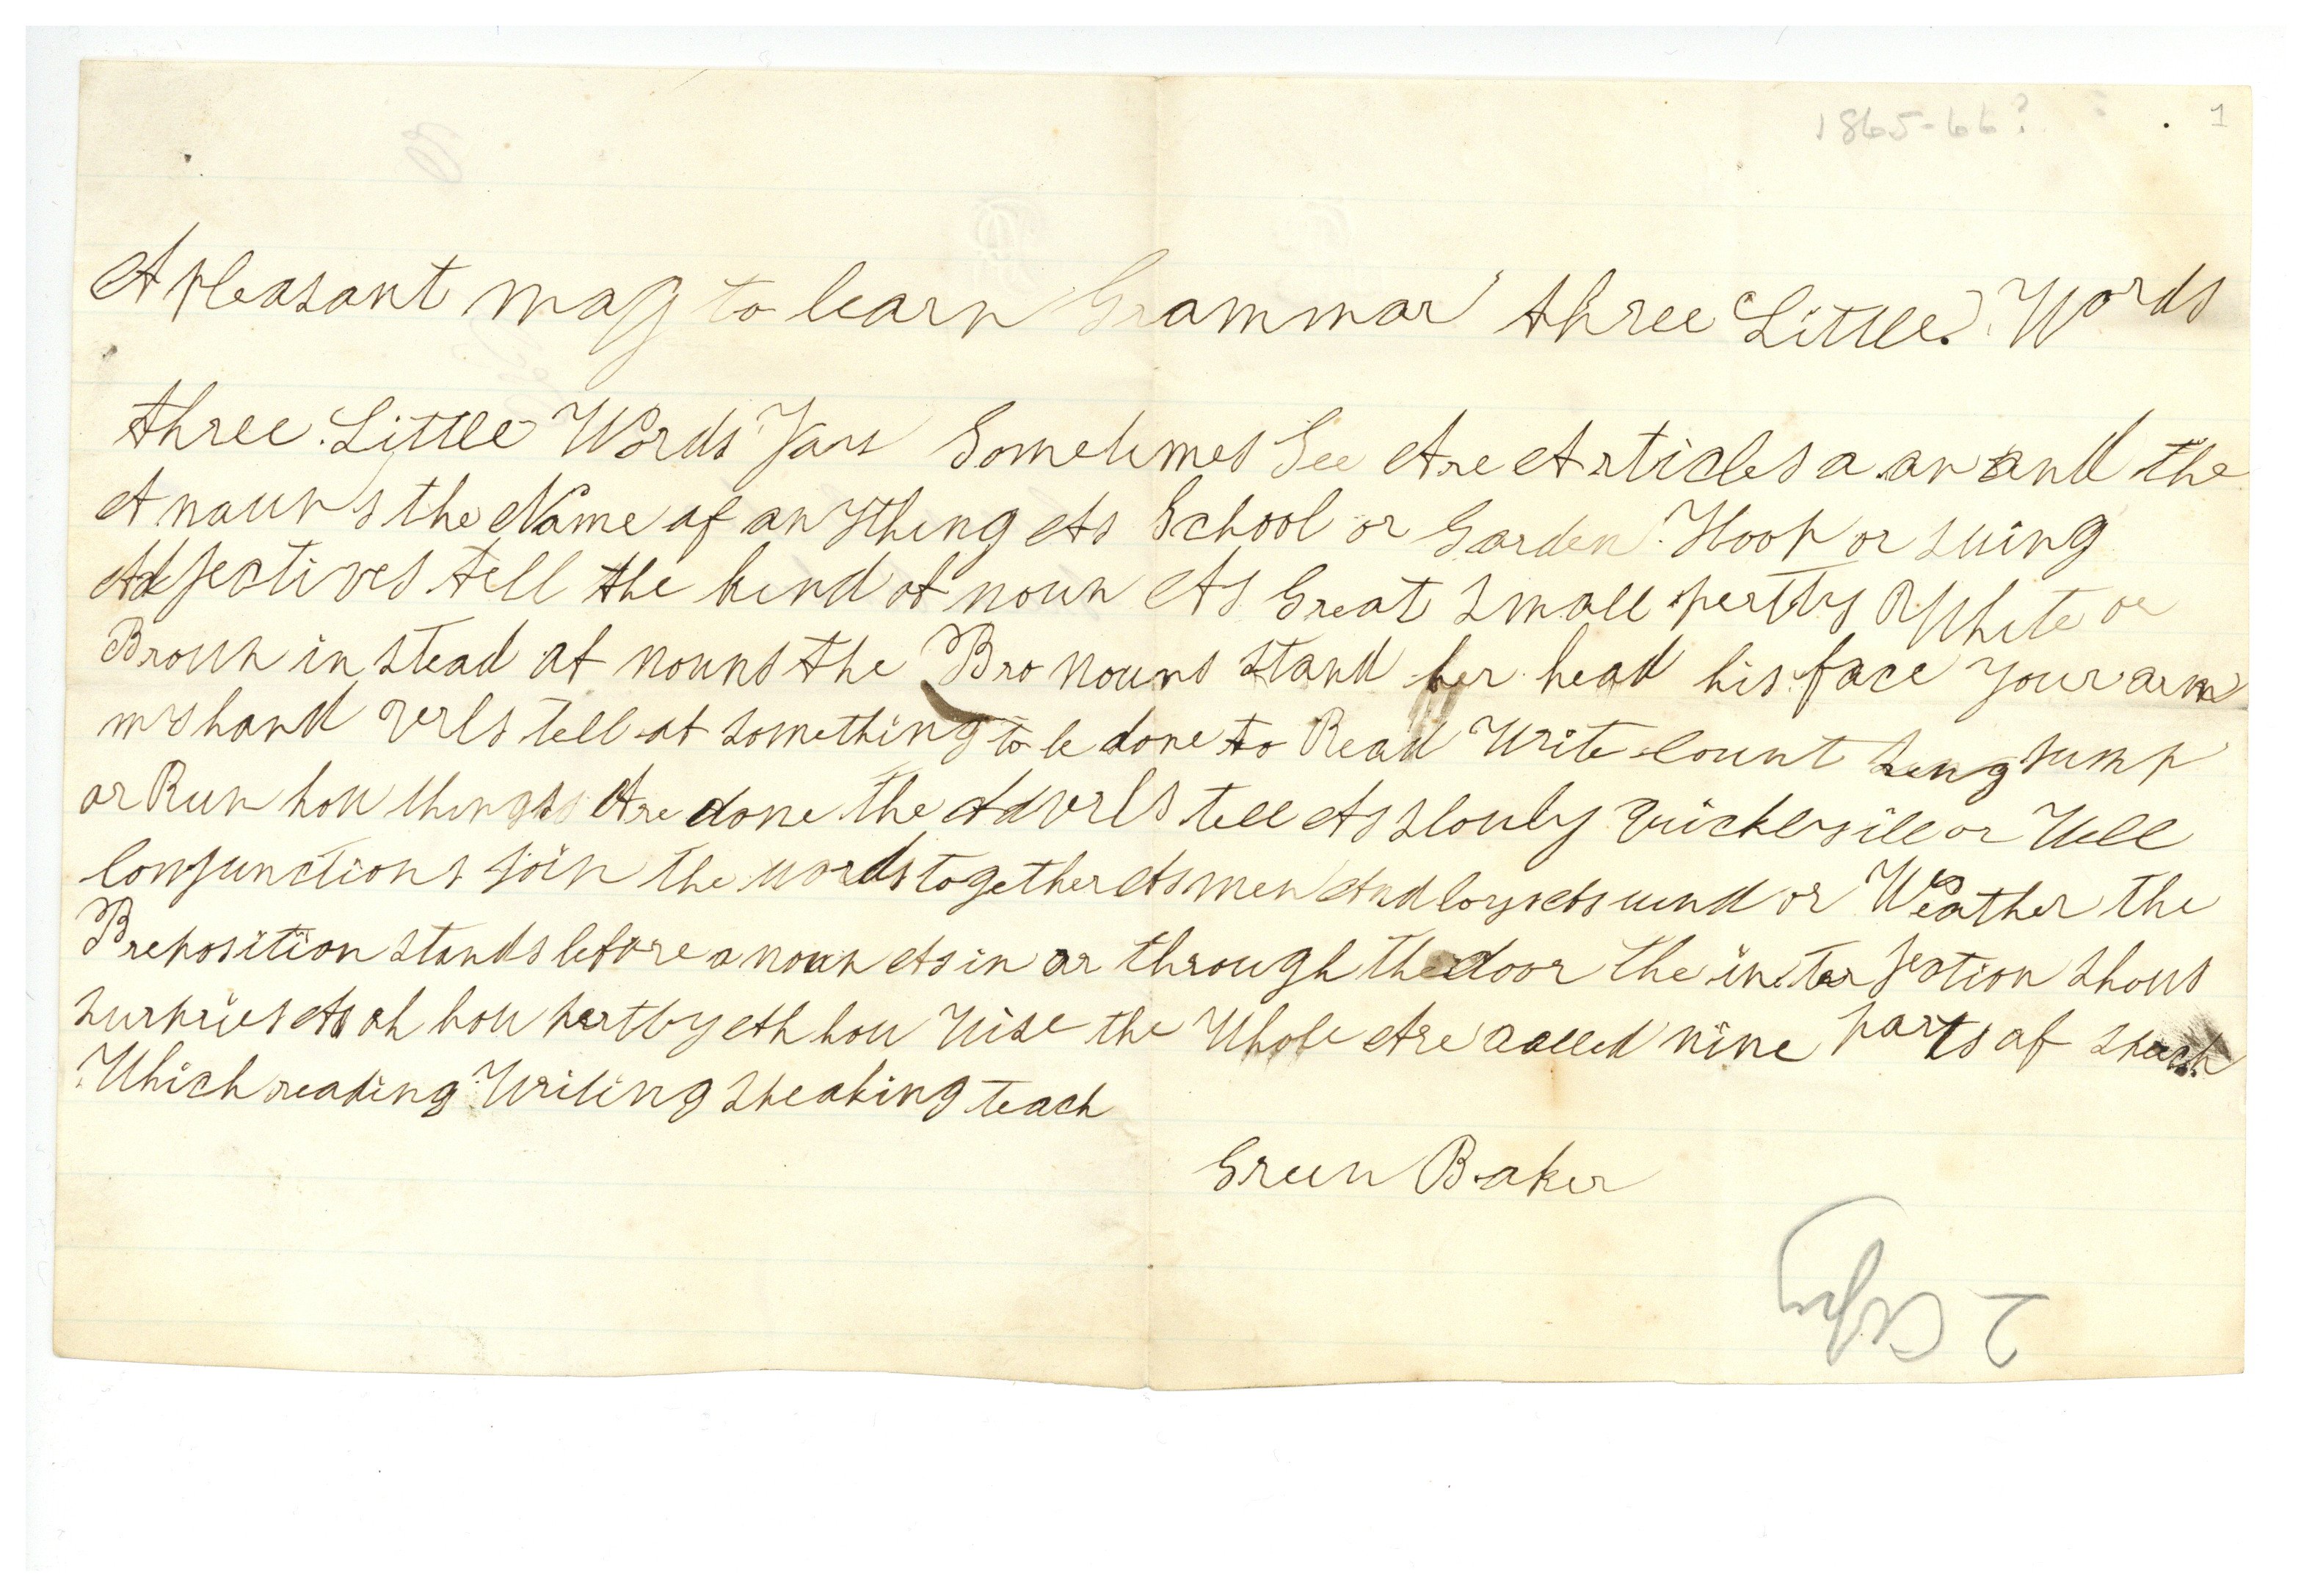 1865-66?
1
A pleasant way to learn Grammar three Little Words
three Little Words You Sometimes See Are Articles a an and the
A noun s the Name of any thing As School or Garden Hoop or swing
Adjectives tell the kind of noun As Great Small pertty White or
Brown in stead of nouns the Bro nouns stand her head his face your arm
my hand verbs tell of something to be done to Read Write count Seng jump
or Run how things Are done the Adverbs tell As slowly Quickly ill or Well
Conjunctions join the words together As men And boys As wind or Weather the
Preposition stands before a noun As in or through the door the inter jection shows
surpries As oh how pertty Ah how Wise the Whole Are called nine parts of speech
Which reading Writing speaking teach
Green Baker
2 Copy